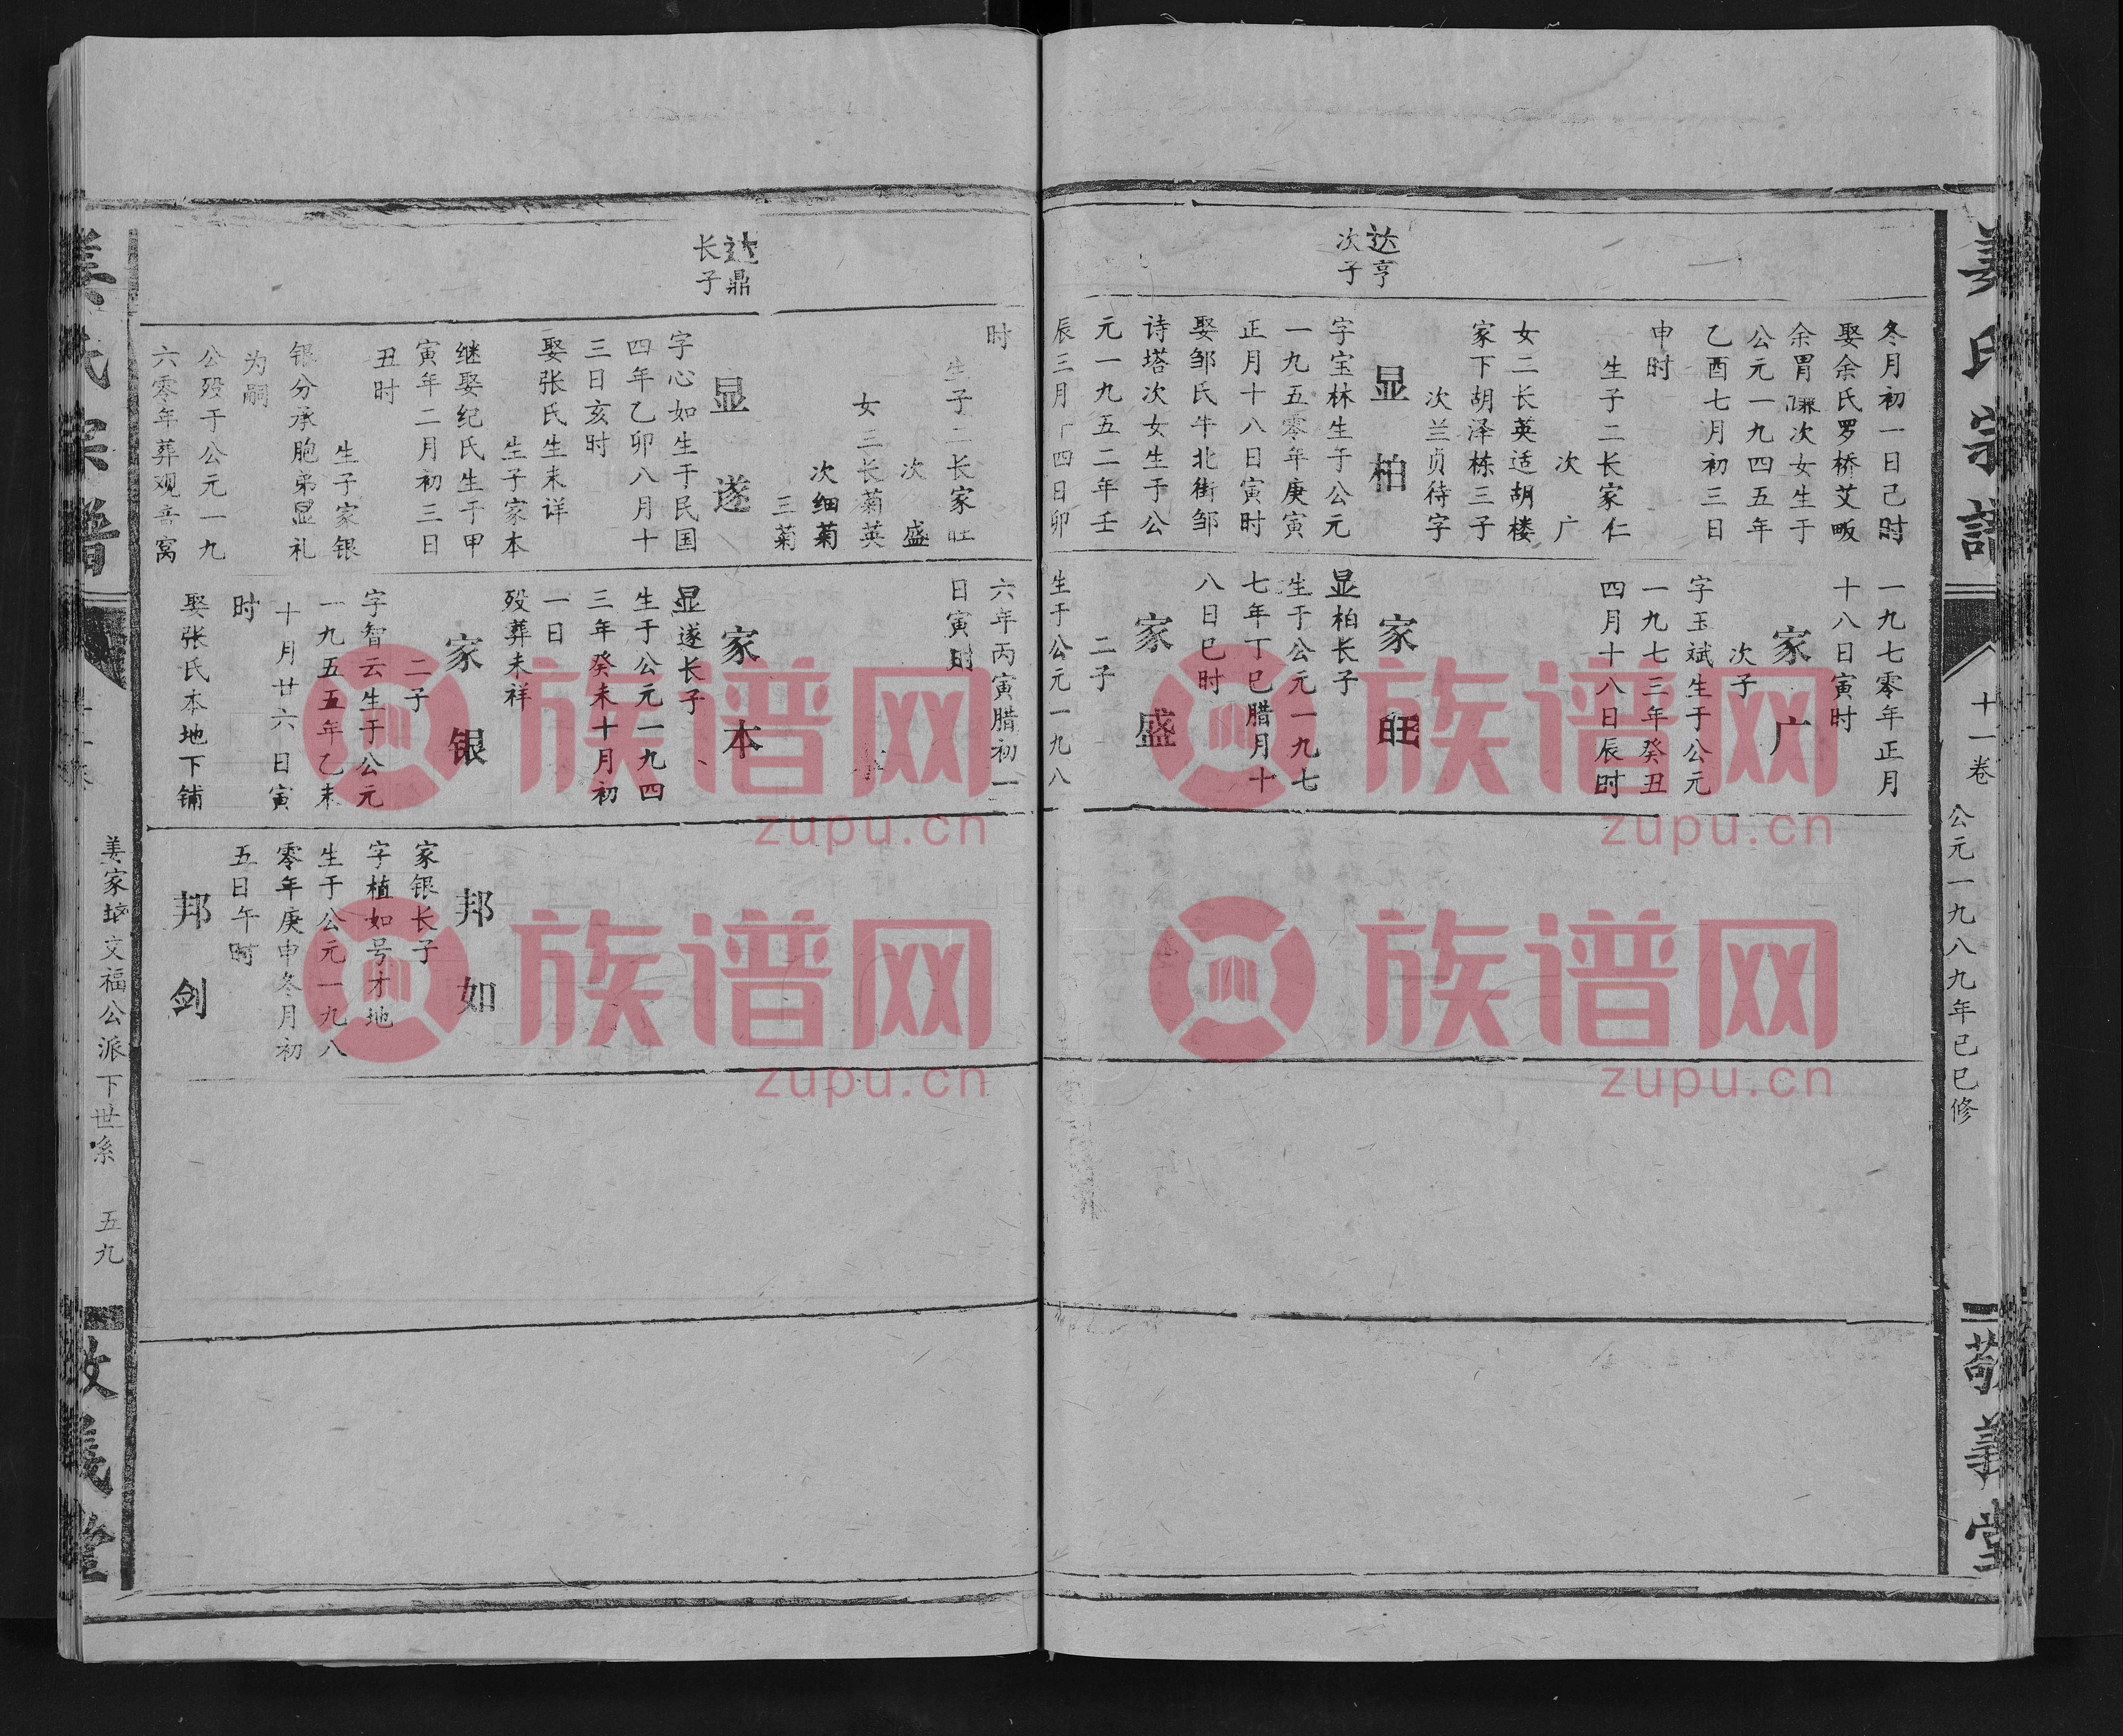 姜氏宗譜
十一卷
公元一九八九年己巳修
敬義堂
达亨
次子
冬月初一日己时
娶余氏罗桥艾畈
余胃 次女生于
公元一九四五年
乙酉七月初三日
申时
生子二长家仁
次广
女二长英适胡楼
家下胡泽栋三子
次兰贞待字
显柏
字宝林生于公元
一九五零年庚寅
正月十八日寅时
娶邹氏牛北街邹
诗塔次女生于公
元一九五二年壬
辰三月十四日卯
一九七零年正月
十八日寅时
家广
次子
字玉斌生于公元
一九七三年癸丑
四月十八日辰时
家旺
显柏长子
生于公元一九七
七年丁巳腊月十
八日巳时
家盛
二子
生于公元一九八
达鼎
长子
时
生子二长家旺
次盛
女三长菊英
次细菊
三菊
显遂
字心如生于民国
四年乙卯八月十
三日亥时
娶张氏生未详
生子家本
继娶纪氏生于甲
寅年二月初三日
丑时
生子家银
银分承胞弟显礼
为嗣
公殁于公元一九
六零年葬观音窝
六年丙寅腊初一
日寅时
家本
显遂长子
生于公元一九四
三年癸未十月初
一日
殁葬未祥
家银
二子
字智云生于公元
一九五五年乙未
十月廿六日寅
时
娶张氏本地下铺
邦如
家银长子
字植如号才地
生于公元一九八
零年庚申冬月初
五日午时
邦剑
姜氏宗譜
姜家垴文福公派下世系
五九
敬義堂
族谱网
zupu.cn
族谱网
zupu.cn
族谱网
zupu.cn
族谱网
zupu.cn